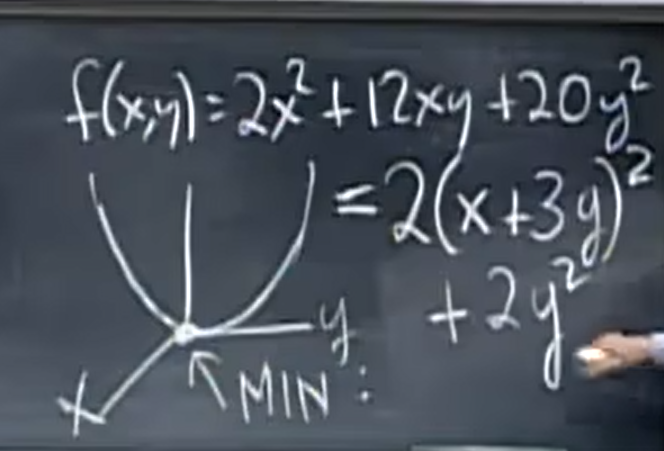 f(x,y)=2x²+12xy+20y²
=2(x+3y)²
+2y²
y
x
MIN: